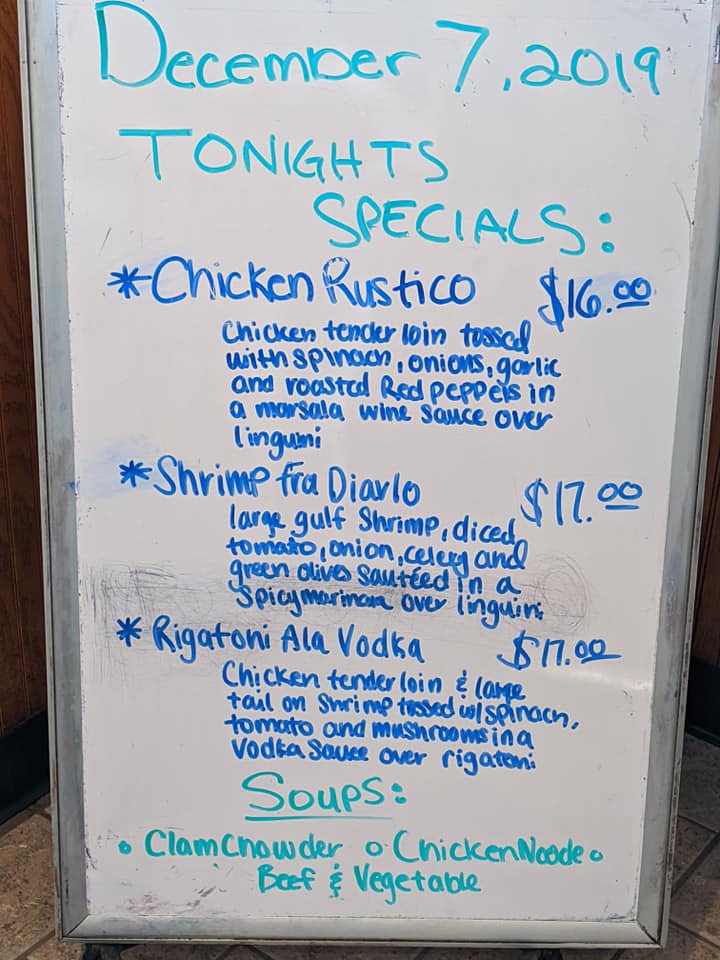 December 7, 2019
TONIGHTS
SPECIALS:
*Chicken Rustico $16.00
Chicken tender loin tossed
with spinach, onions, garlic
and roasted Red peppers in
a marsala wine sauce over
linguini
*Shrimp fra Diavlo $17.00
large gulf Shrimp, diced
tomato, onion, celery and
green olives sautéed in a
spicy marinara over linguini
* Rigatoni Ala Vodka $17.00
Chicken tender loin & large
tail on Shrimp tossed w/ spinach,
tomato and mushrooms in a
Vodka sauce over rigatoni
Soups:
o Clam Chowder o Chicken Noodle o
Beef & Vegetable